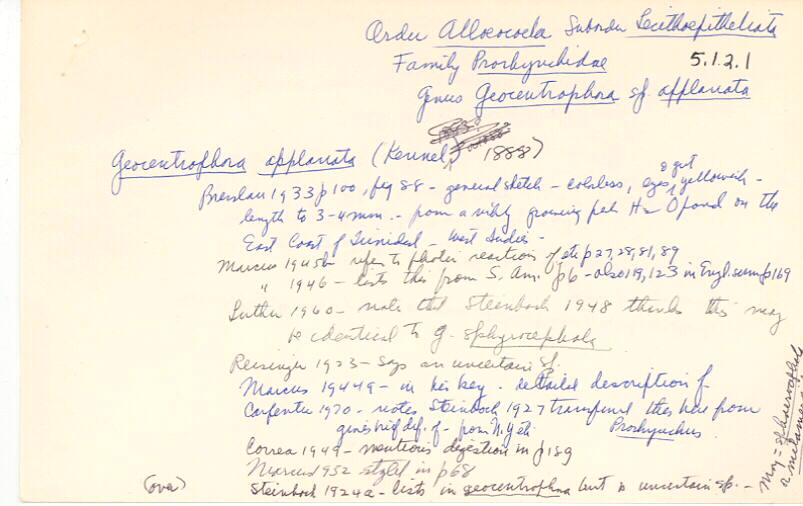 Order Alloeocoela Suborder Lecithoepitheliata
Family Prorhynchidae 5.1.2.1
Genus Geocentrophora sp. applanata
Geocentrophora applanata (Kennel, 1888)
Breslau 1933 p 100, fig 88 - general sketch - colorless, eyes & gut yellowish -
length to 3-4 mm. - from a growing H2O pond on the
East Coast of Trinidad - West Indies -
Marcus 1945b refers to photic reaction of etc p 27, 28, 81, 89
" 1946 - lists this from S. Am. p6 - also 119, 123 in Engl. summ p 169
Luther 1960 - note that Steinbock 1948 thinks this may
be identical to G. sphyrocephala
Reisinger 1923 - says an uncertain sp.
Marcus 1944 - in his key - detailed description of
Carpenter 1970 - notes Steinbock 1927 transferred this here from
gives brief def. of - from N.Y. etc Prorhynchus
Correa 1949 - mentions digestion in p 189
Marcus 1952 stylet in p 68
(over) Steinbock 1924a - lists in geocentrophora but is uncertain sp. -
May =
a